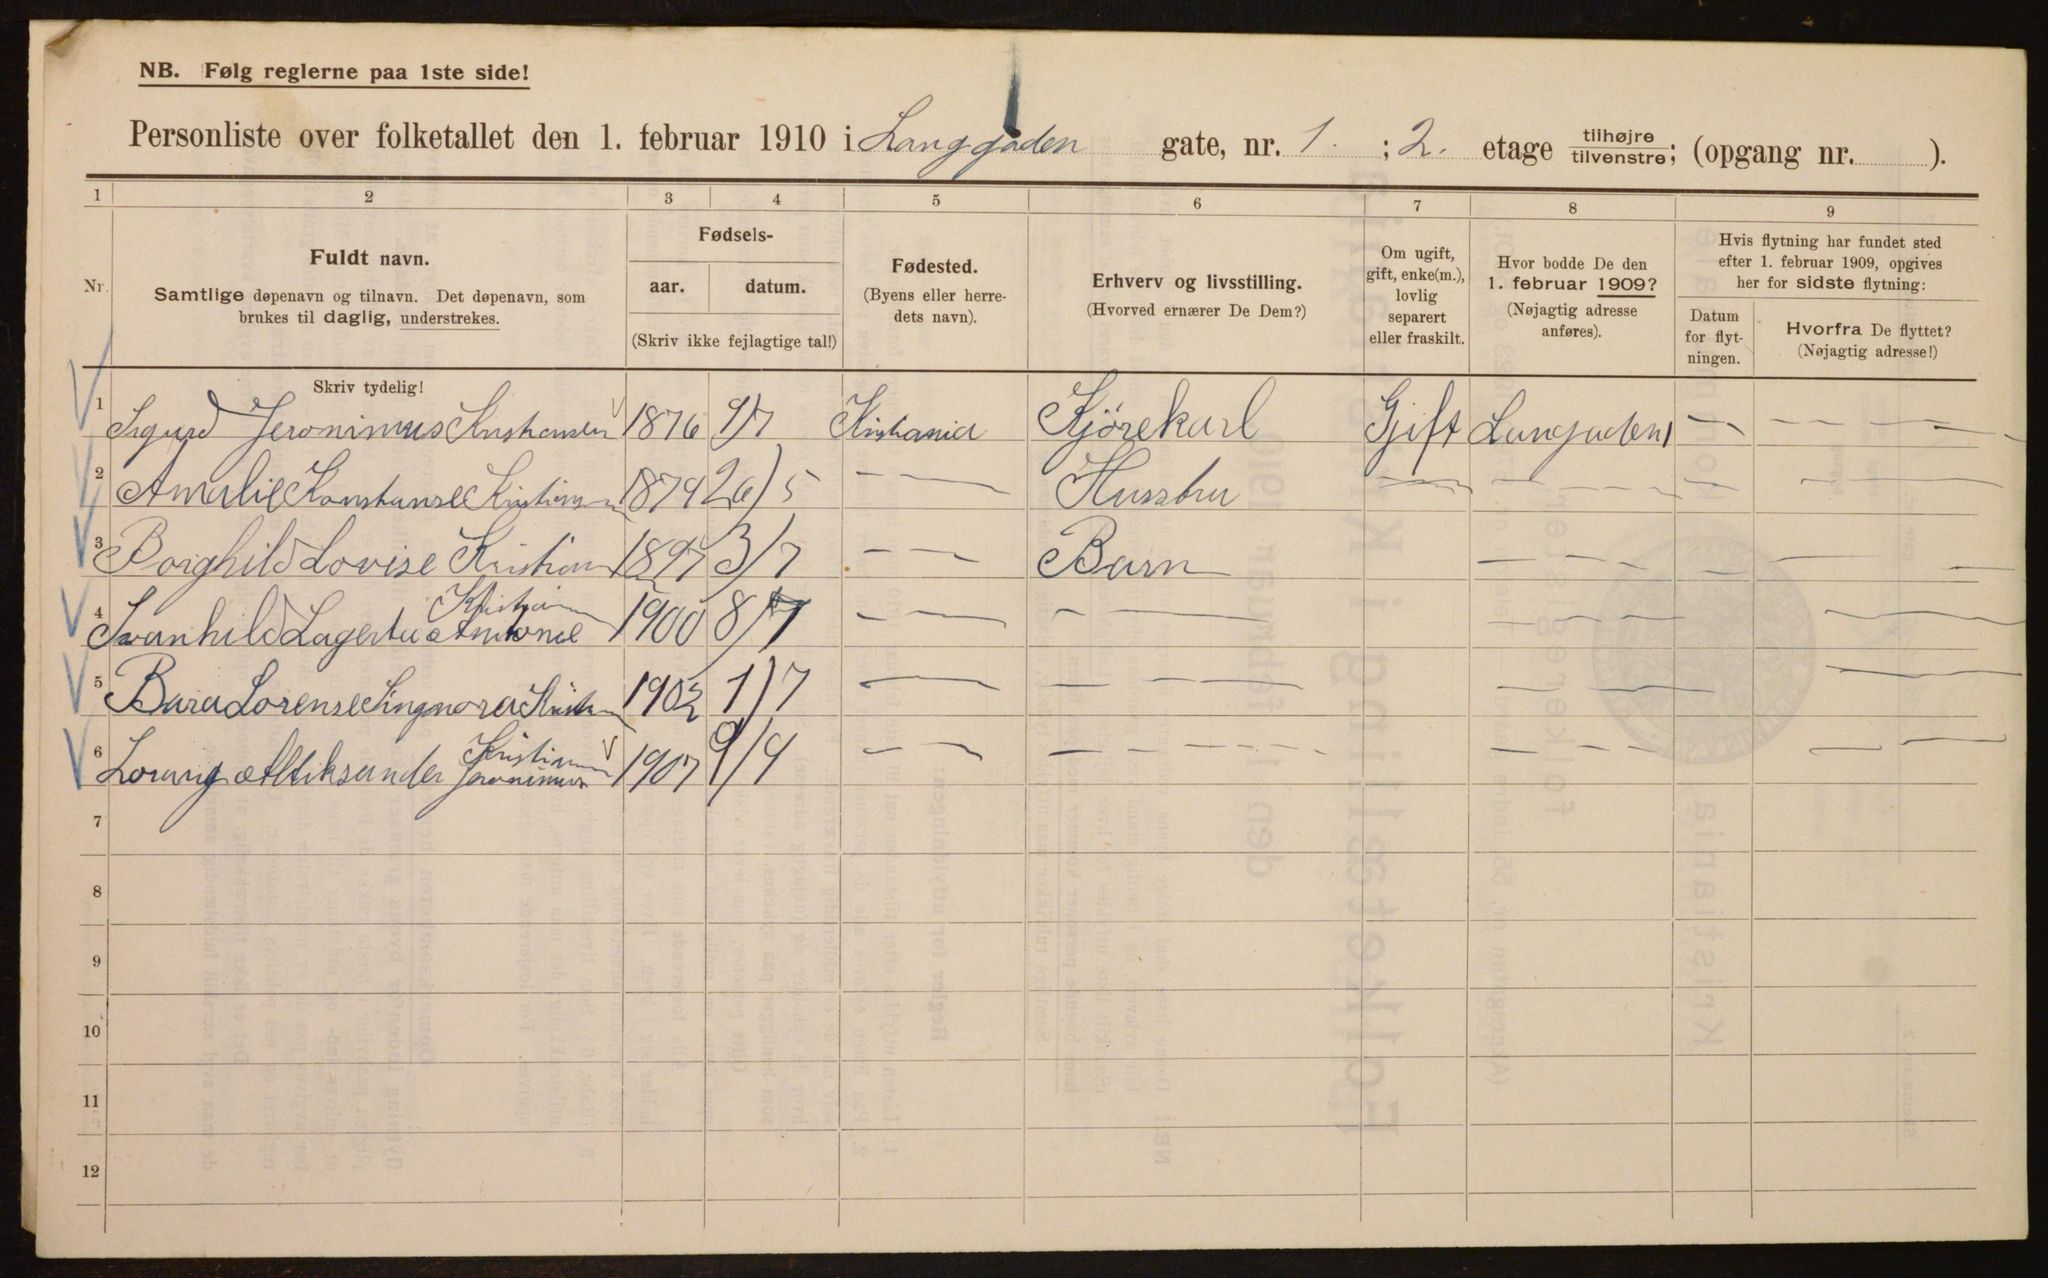 NB. Følg reglerne paa 1ste side!
Personliste over folketallet den 1. februar 1910 i Langgaden gate, nr. 1. ; 2. etage tilhøjre / tilvenstre; (opgang nr. ).
1 2 3 4 5 6 7 8 9
Nr.
Fuldt navn.
Samtlige døpenavn og tilnavn. Det døpenavn, som
brukes til daglig, understrekes.
Skriv tydelig!
Fødsels-
aar. datum.
(Skriv ikke fejlagtige tal!)
Fødested.
(Byens eller herre-
dets navn).
Erhverv og livsstilling.
(Hvorved ernærer De Dem?)
Om ugift,
gift, enke(m.),
lovlig
separert
eller fraskilt.
Hvor bodde De den
1. februar 1909?
(Nøjagtig adresse
anføres).
Hvis flytning har fundet sted
efter 1. februar 1909, opgives
her for sidste flytning:
Datum
for flyt-
ningen.
Hvorfra De flyttet?
(Nøjagtig adresse!)
1 Sigurd Jeronimus Kristiansen 1876 9/7 Kristiania Kjørekarl Gift Langgaden 1 — — — — —
2 Amalie Konstanse Kristiansen 1879 26/5 — — Husstru — — — — —
3 Borghild Lovise Kristian 1897 3/7 — — Barn — — — — —
Kristian
4 Svanhild Lagerta Antonie 1900 8/7 — — — — — — — — —
5 Lorense 1902 1/7 — — — — — — — — —
Kristian
6 Jeronimus 1907 9/4 — — — — — — — —
7
8
9
10
11
12